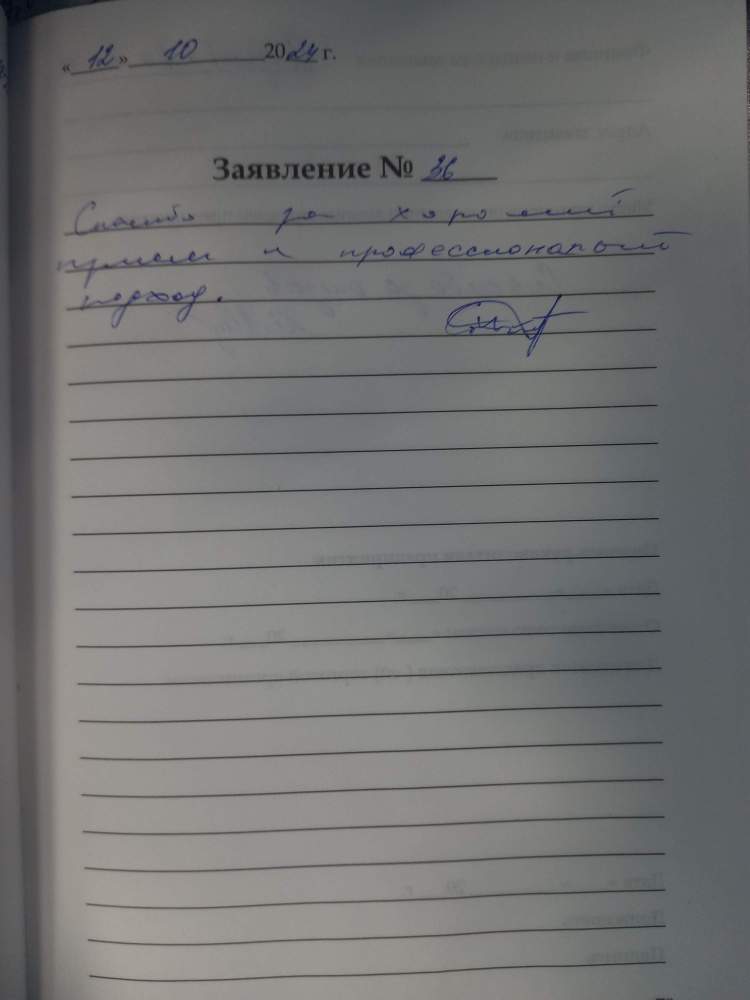 «12» 10 2024 г.
Заявление № 36
Спасибо за хороший
прием и профессиональный
подход.